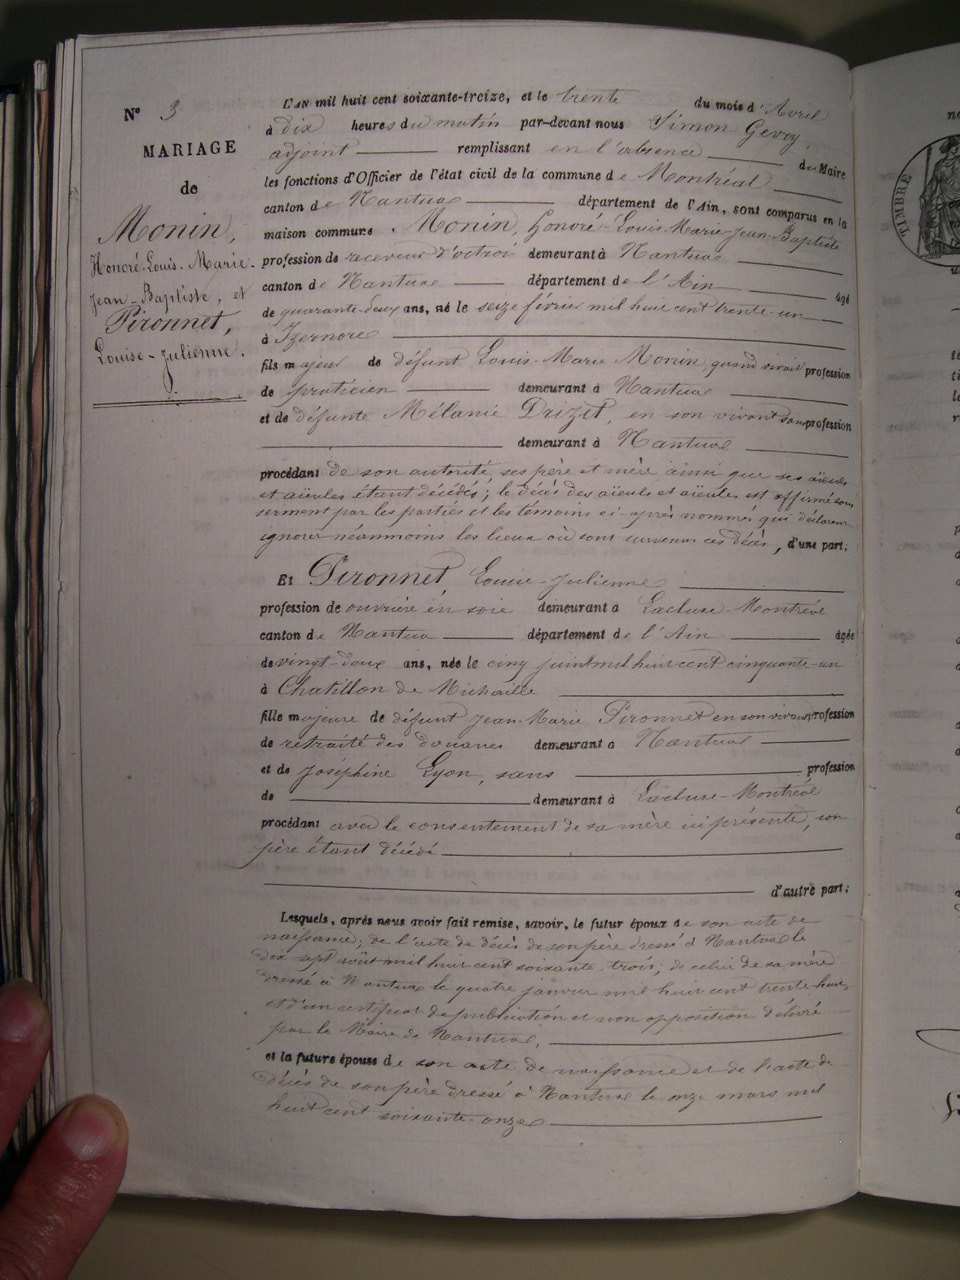 N° 3
MARIAGE
de
Monin,
Honoré-Louis-Marie-
Jean-Baptiste, et
Pironnet,
Louise-Julienne.
L'AN mil huit cent soixante-treize, et le trente du mois d'Avril
à dix heures du matin par-devant nous Simon Gevoy,
adjoint remplissant en l'absence du Maire
les fonctions d'Officier de l'état civil de la commune de Montréal
canton de Nantua département de l'Ain, sont comparus en la
maison commune. Monin, Honoré-Louis-Marie-Jean-Baptiste
profession de receveur d'octroi demeurant à Nantua
canton de Nantua département de l'Ain âgé
de quarante-deux ans, né le seize février mil huit cent trente-un
à Izernore
fils majeur de défunt Louis-Marie Monin quand vivait profession
de praticien demeurant à Nantua
et de défunte Mélanie Drizet, en son vivant sans profession
demeurant à Nantua
procédant de son autorité, ses père et mère ainsi que ses aïeuls
et aïeules étant décédés; le décès des aïeuls et aïeules est affirmé sous
serment par les parties et les témoins ci-après nommés qui déclarent
ignorer néanmoins les lieux où sont survenus ces décès, d'une part.
Et Pironnet Louise-Julienne
profession de ouvrière en soie demeurant à Lacluse-Montréal
canton de Nantua département de l'Ain âgée
de vingt-deux ans, née le cinq juin mil huit cent cinquante-un
à Chatillon de Michaille
fille majeure de défunt Jean-Marie Pironnet en son vivant profession
de retraité des douanes demeurant à Nantua
et de Joséphine Lyon, sans profession
de demeurant à Lacluse-Montréal
procédant avec le consentement de sa mère ici présente, son
père étant décédé
d'autre part;
Lesquels, après nous avoir fait remise, savoir, le futur époux de son acte de
naissance; de l'acte de décès de son père dressé à Nantua le
dix sept août mil huit cent soixante-trois; de celui de sa mère
dressé à Nantua le quatre janvier mil huit cent trente-huit,
et d'un certificat de publication et non opposition délivré
par le Maire de Nantua,
et la future épouse de son acte de naissance et de l'acte de
décès de son père dressé à Nantua le onze mars mil
huit cent soixante-onze
TIMBRE